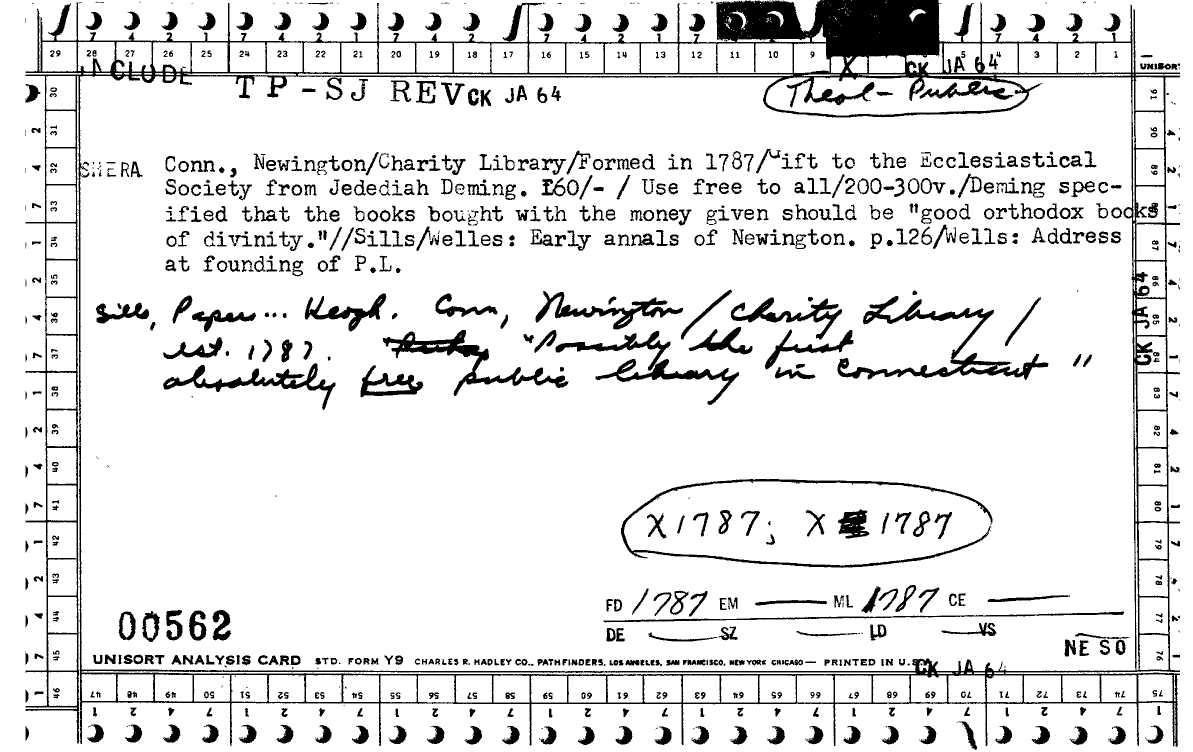 7 4 2 1 7 4 2 1 7 4 2 1 7 4 2 1 7 4 2 1 7 4 2 1
29 28 27 26 25 24 23 22 21 20 19 18 17 16 15 14 13 12 11 10 9 5 4 3 2 1
INCLUDE X CK JA 64 UNISORT
TP-SJ REV CK JA 64 Theol - Public
SHERA Conn., Newington/Charity Library/Formed in 1787/Gift to the Ecclesiastical
Society from Jedediah Deming. £60/- / Use free to all/200-300v./Deming spec-
ified that the books bought with the money given should be "good orthodox books
of divinity."//Sills/Welles: Early annals of Newington. p.126/Wells: Address
at founding of P.L.
Sills, Papers... Keogh. Conn, Newington / Charity Library /
est. 1787. "Possibly the first
absolutely free public library in Connecticut "
CK JA 64
X1787; X 1787
FD 1787 EM — ML 1787 CE —
00562 DE — SZ — LD — VS
NE SO
UNISORT ANALYSIS CARD STD. FORM Y9 CHARLES R. HADLEY CO., PATHFINDERS, LOS ANGELES, SAN FRANCISCO, NEW YORK CHICAGO — PRINTED IN U.S.
CK JA 64
30 31 32 33 34 35 36 37 38 39 40 41 42 43 44 45 46
91 90 89 88 87 86 85 84 83 82 81 80 79 78 77 76
47 48 49 50 51 52 53 54 55 56 57 58 59 60 61 62 63 64 65 66 67 68 69 70 71 72 73 74 75
1 2 4 7 1 2 4 7 1 2 4 7 1 2 4 7 1 2 4 7 1 2 4 7 1 2 4 7 1